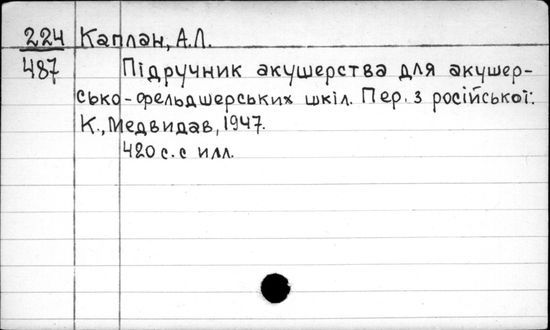 224 Каплан, А.Л.
487 Підручник акушерства для акушер-
сько-фельдшерських шкіл. Пер. з російської.
К., Медвидав, 1947.
420 с. с илл.